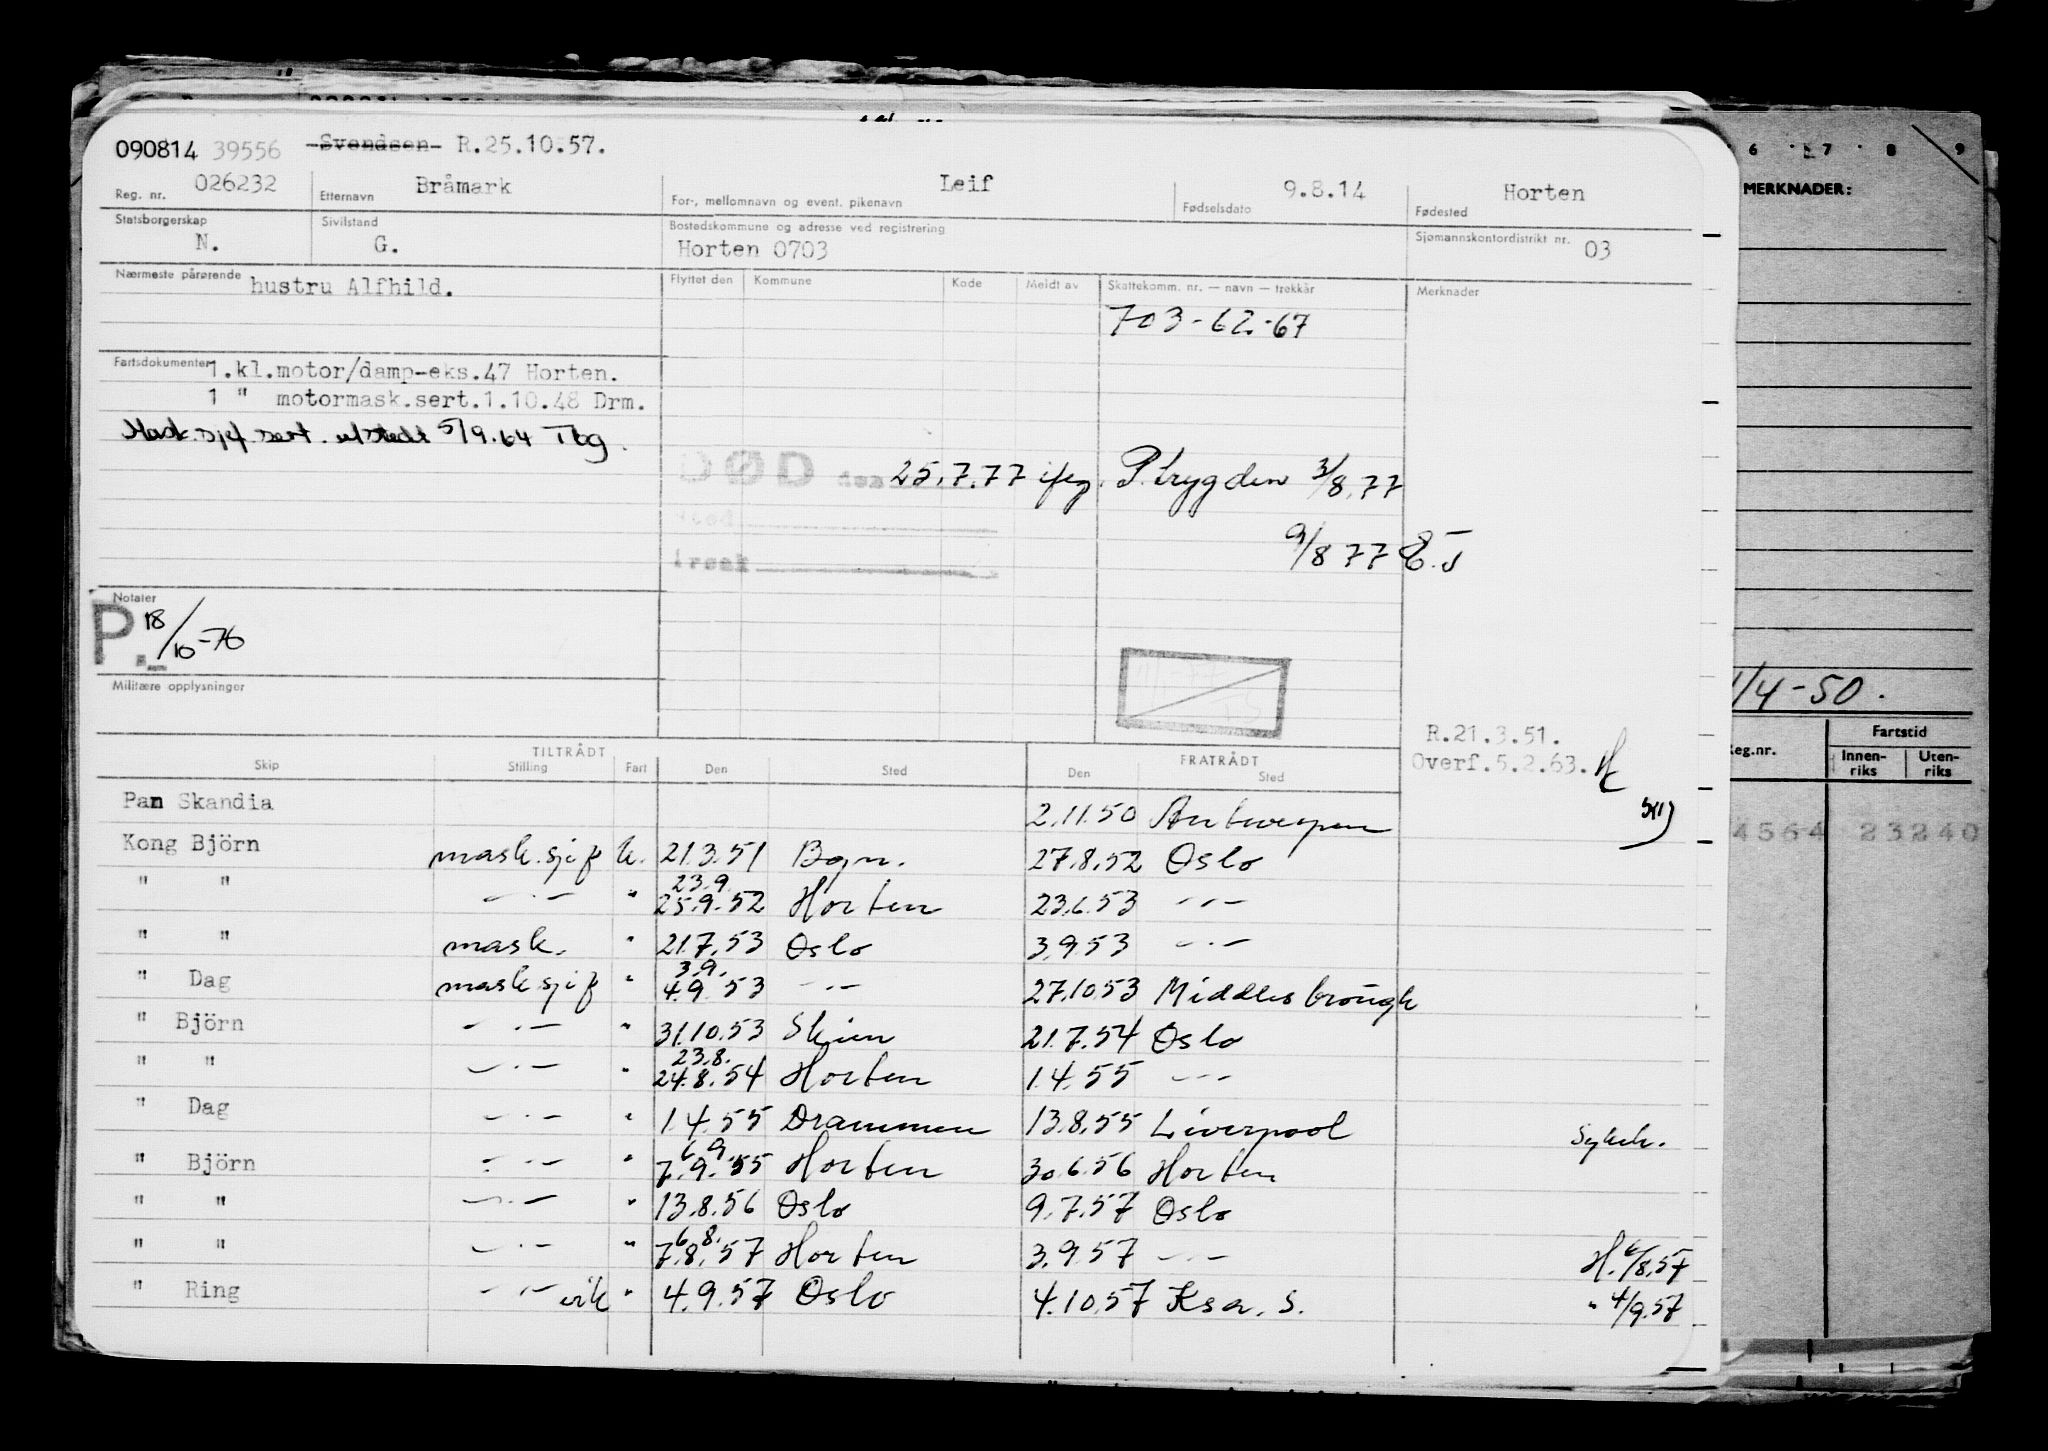 090814 39556 Svendsen R.25.10.57.
026232 Bråmark Leif 9.8.14 Horten
Reg. nr. Etternavn For-, mellomnavn og event. pikenavn Fødselsdato Fødested
Statsborgerskap Sivilstand Bostedskommune og adresse ved registrering Sjømannskontordistrikt nr.
N. G. Horten 0703 03
Nærmeste pårørende hustru Alfhild. Flyttet den Kommune Kode Meldt av Skattekomm. nr. — navn — trekkår Merknader
703-62-67
Fartsdokumenter 1.kl.motor/damp-eks.47 Horten.
1 " motormask.sert.1.10.48 Drm.
Mask.sjef sert. utstedt 5/9.64 Tbg.
DØD den 25.7.77 iføg. P.trygden 3/8.77
Sted
9/8 77 E.J
Årsak
Notater
P. 18/10-76
Militære opplysninger
R.21.3.51.
Overf.5.2.63.
TILTRÅDT FRATRÅDT
Skip Stilling Fart Den Sted Den Sted
Pan Skandia 2.11.50 Antwerpen
Kong Björn mask.sjef u. 21.3.51 Bgn. 27.8.52 Oslo
" " — . — " 23.9. 25.9.52 Horten 23.6.53 — " —
" " mask. " 21.7.53 Oslo 3.9.53 — " —
" Dag mask sjef " 3.9. 4.9.53 — " — 27.10.53 Middlesbrough
" Björn — " — " 31.10.53 Skien 21.7.54 Oslo
" " — " — " 23.8. 24.8.54 Horten 1.4.55 — " —
" Dag — " — " 1.4.55 Drammen 13.8.55 Liverpool Sykeh.
" Björn — " — " 6.9. 7.9.55 Horten 30.6.56 Horten
" " — " — " 13.8.56 Oslo 9.7.57 Oslo
" " — " — " 6.8. 7.8.57 Horten 3.9.57 — " — H. 6/8.57
" Ring — " — vik " 4.9.57 Oslo 4.10.57 Ksa. S. " 4/9.57
6 7 8 9
MERKNADER:
1/4-50.
Reg.nr. Fartstid
Innenriks Utenriks
4564 23240